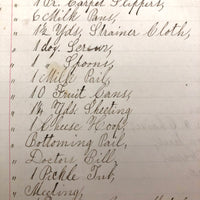 " 1 Pr. Carpet Slippers,
" 6 Milk Pans,
" 1½ Yds. Strainer Cloth,
" 1 doz. Screws,
" 1 " Spoons,
" 1 Milk Pail,
" 10 Fruit Cans,
" 1¾ Yds. Sheeting
" 1 Cheese Hoop,
" Bottoming Pail,
" Doctors Bill,
" 1 Pickle Tub,
" Meeting,